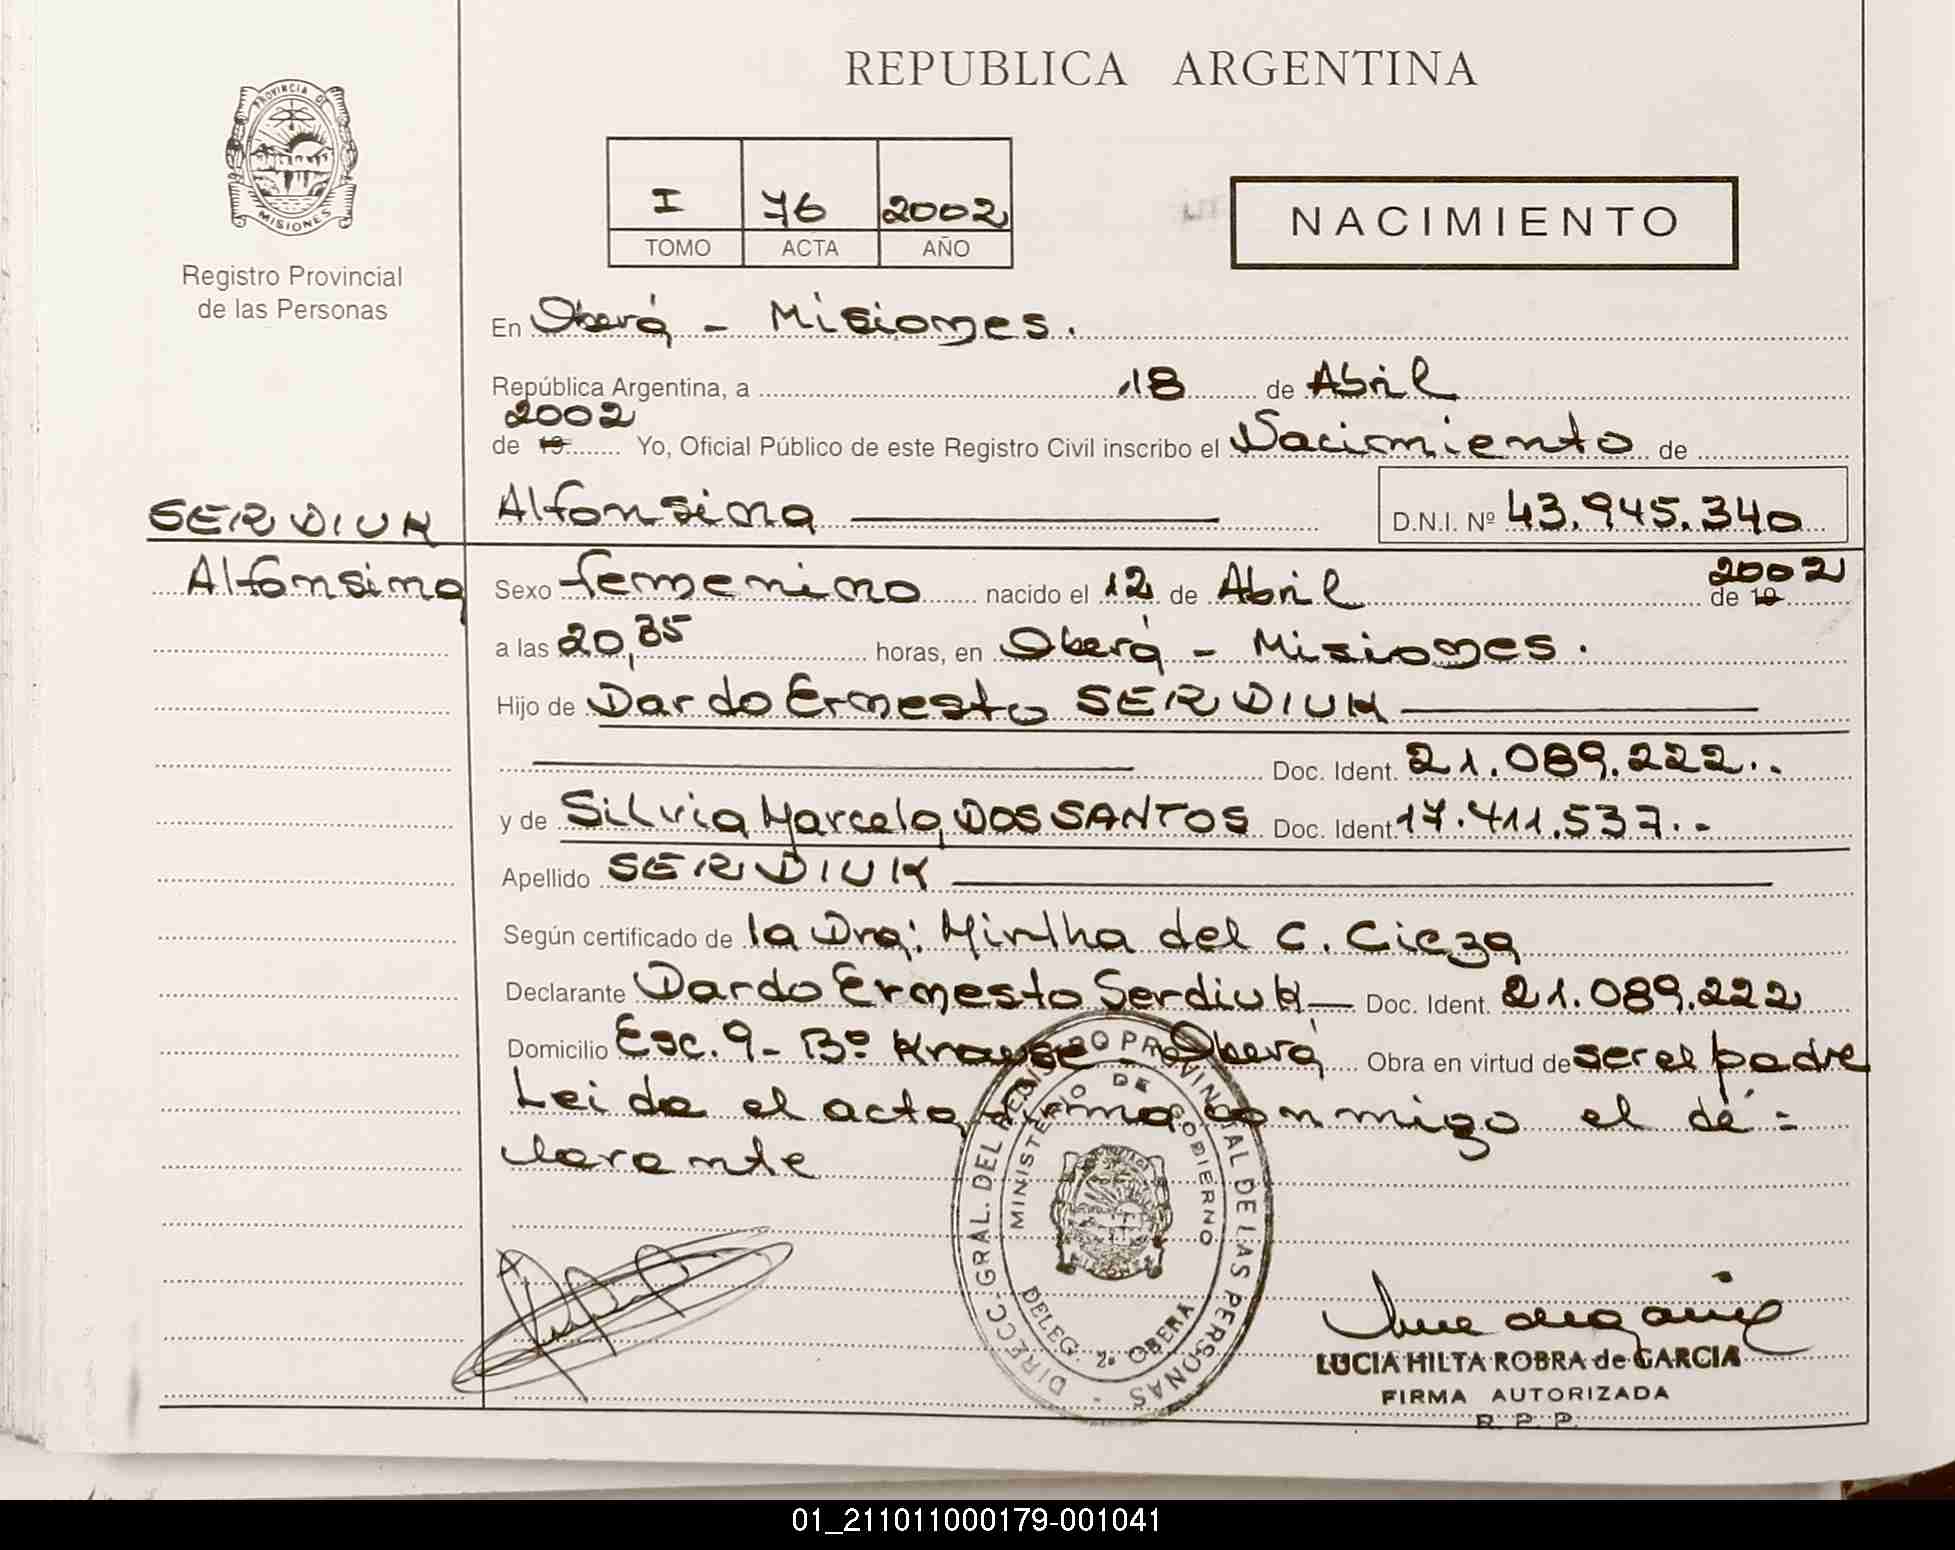 PROVINCIA DE
MISIONES
Registro Provincial
de las Personas
REPUBLICA ARGENTINA
I 76 2002
TOMO ACTA AÑO
NACIMIENTO
En Oberá - Misiones.
República Argentina, a 18 de Abril
2002
de 19 Yo, Oficial Público de este Registro Civil inscribo el Nacimiento de
SERDIUK Alfonsina D.N.I. Nº 43.945.340
Alfonsina Sexo femenino nacido el 12 de Abril de 19 2002
a las 20,35 horas, en Oberá - Misiones.
Hijo de Dardo Ernesto SERDIUK
Doc. Ident. 21.089.222.-
y de Silvia Marcela DOS SANTOS Doc. Ident. 17.411.537.-
Apellido SERDIUK
Según certificado de la Dra: Mirtha del C. Cieza
Declarante Dardo Ernesto Serdiuk Doc. Ident. 21.089.222
Domicilio Esc. 9 - Bº Krause - Oberá Obra en virtud de ser el padre
Leida el acta, firma conmigo el de=
clarante
DIRECC. GRAL. DEL REGISTRO PROVINCIAL DE LAS PERSONAS -
MINISTERIO DE GOBIERNO
DELEG. 2ª OBERA
LUCIA HILTA ROBRA de GARCIA
FIRMA AUTORIZADA
R. P. P.
01_211011000179-001041